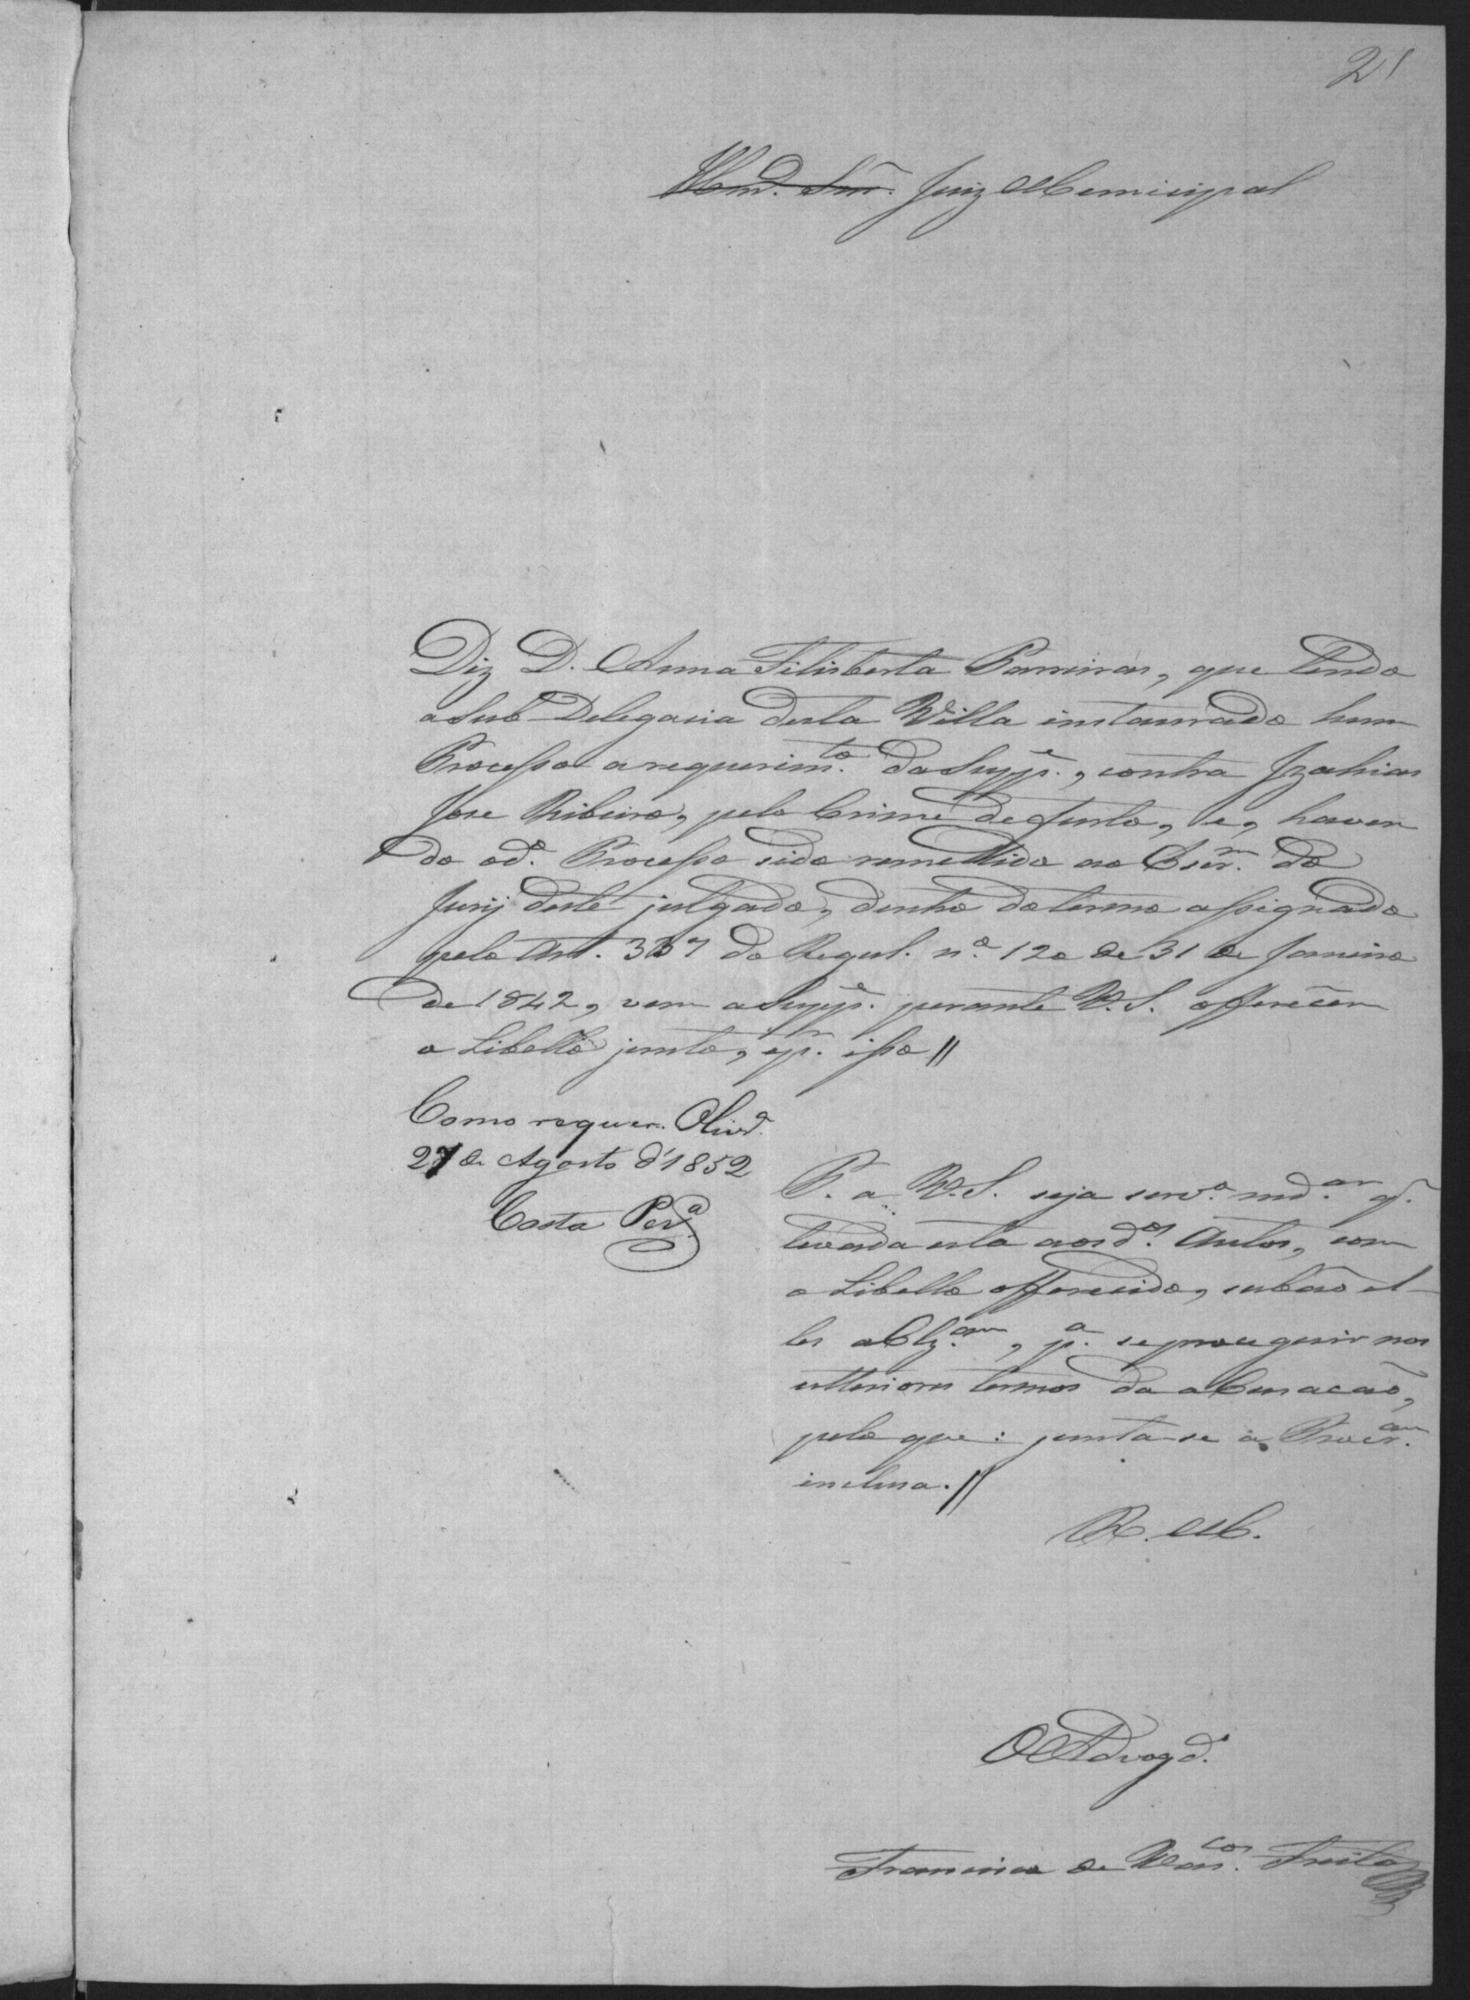 21
Illmo. Snr. Juiz Municipal
Diz D. Anna Filisberta Parreiras, que tendo
a Sub Delegacia desta Villa instaurado hum
Processo a requerimto. da Suppe., contra Izahias
Jose Ribeiro, pelo Crime de furto, e, haven
do o do. Processo sido remettido ao Escrm. do
Jury deste julgado, dentro do termo assignado
pelo Art. 337 do Regul. no. 120 de 31 de Janeiro
de 1842, vem a Suppe. perante V. S. offerecer
o Libello junto, e pr. isso //
Como requer. Olivra.
27 de Agosto d'1852
Costa Pera.
P. a V. S. seja servo. mdar. q.
levada esta aos dos. Autos, com
o Libello offerecido, subão el-
les a Clzam., pa. se proseguir nos
ulteriores termos da acCusacão,
pelo que: junta-se a Procram.
inclusa. //
R. M.
O Advogdo.
Francisco de Vascos. Freitas